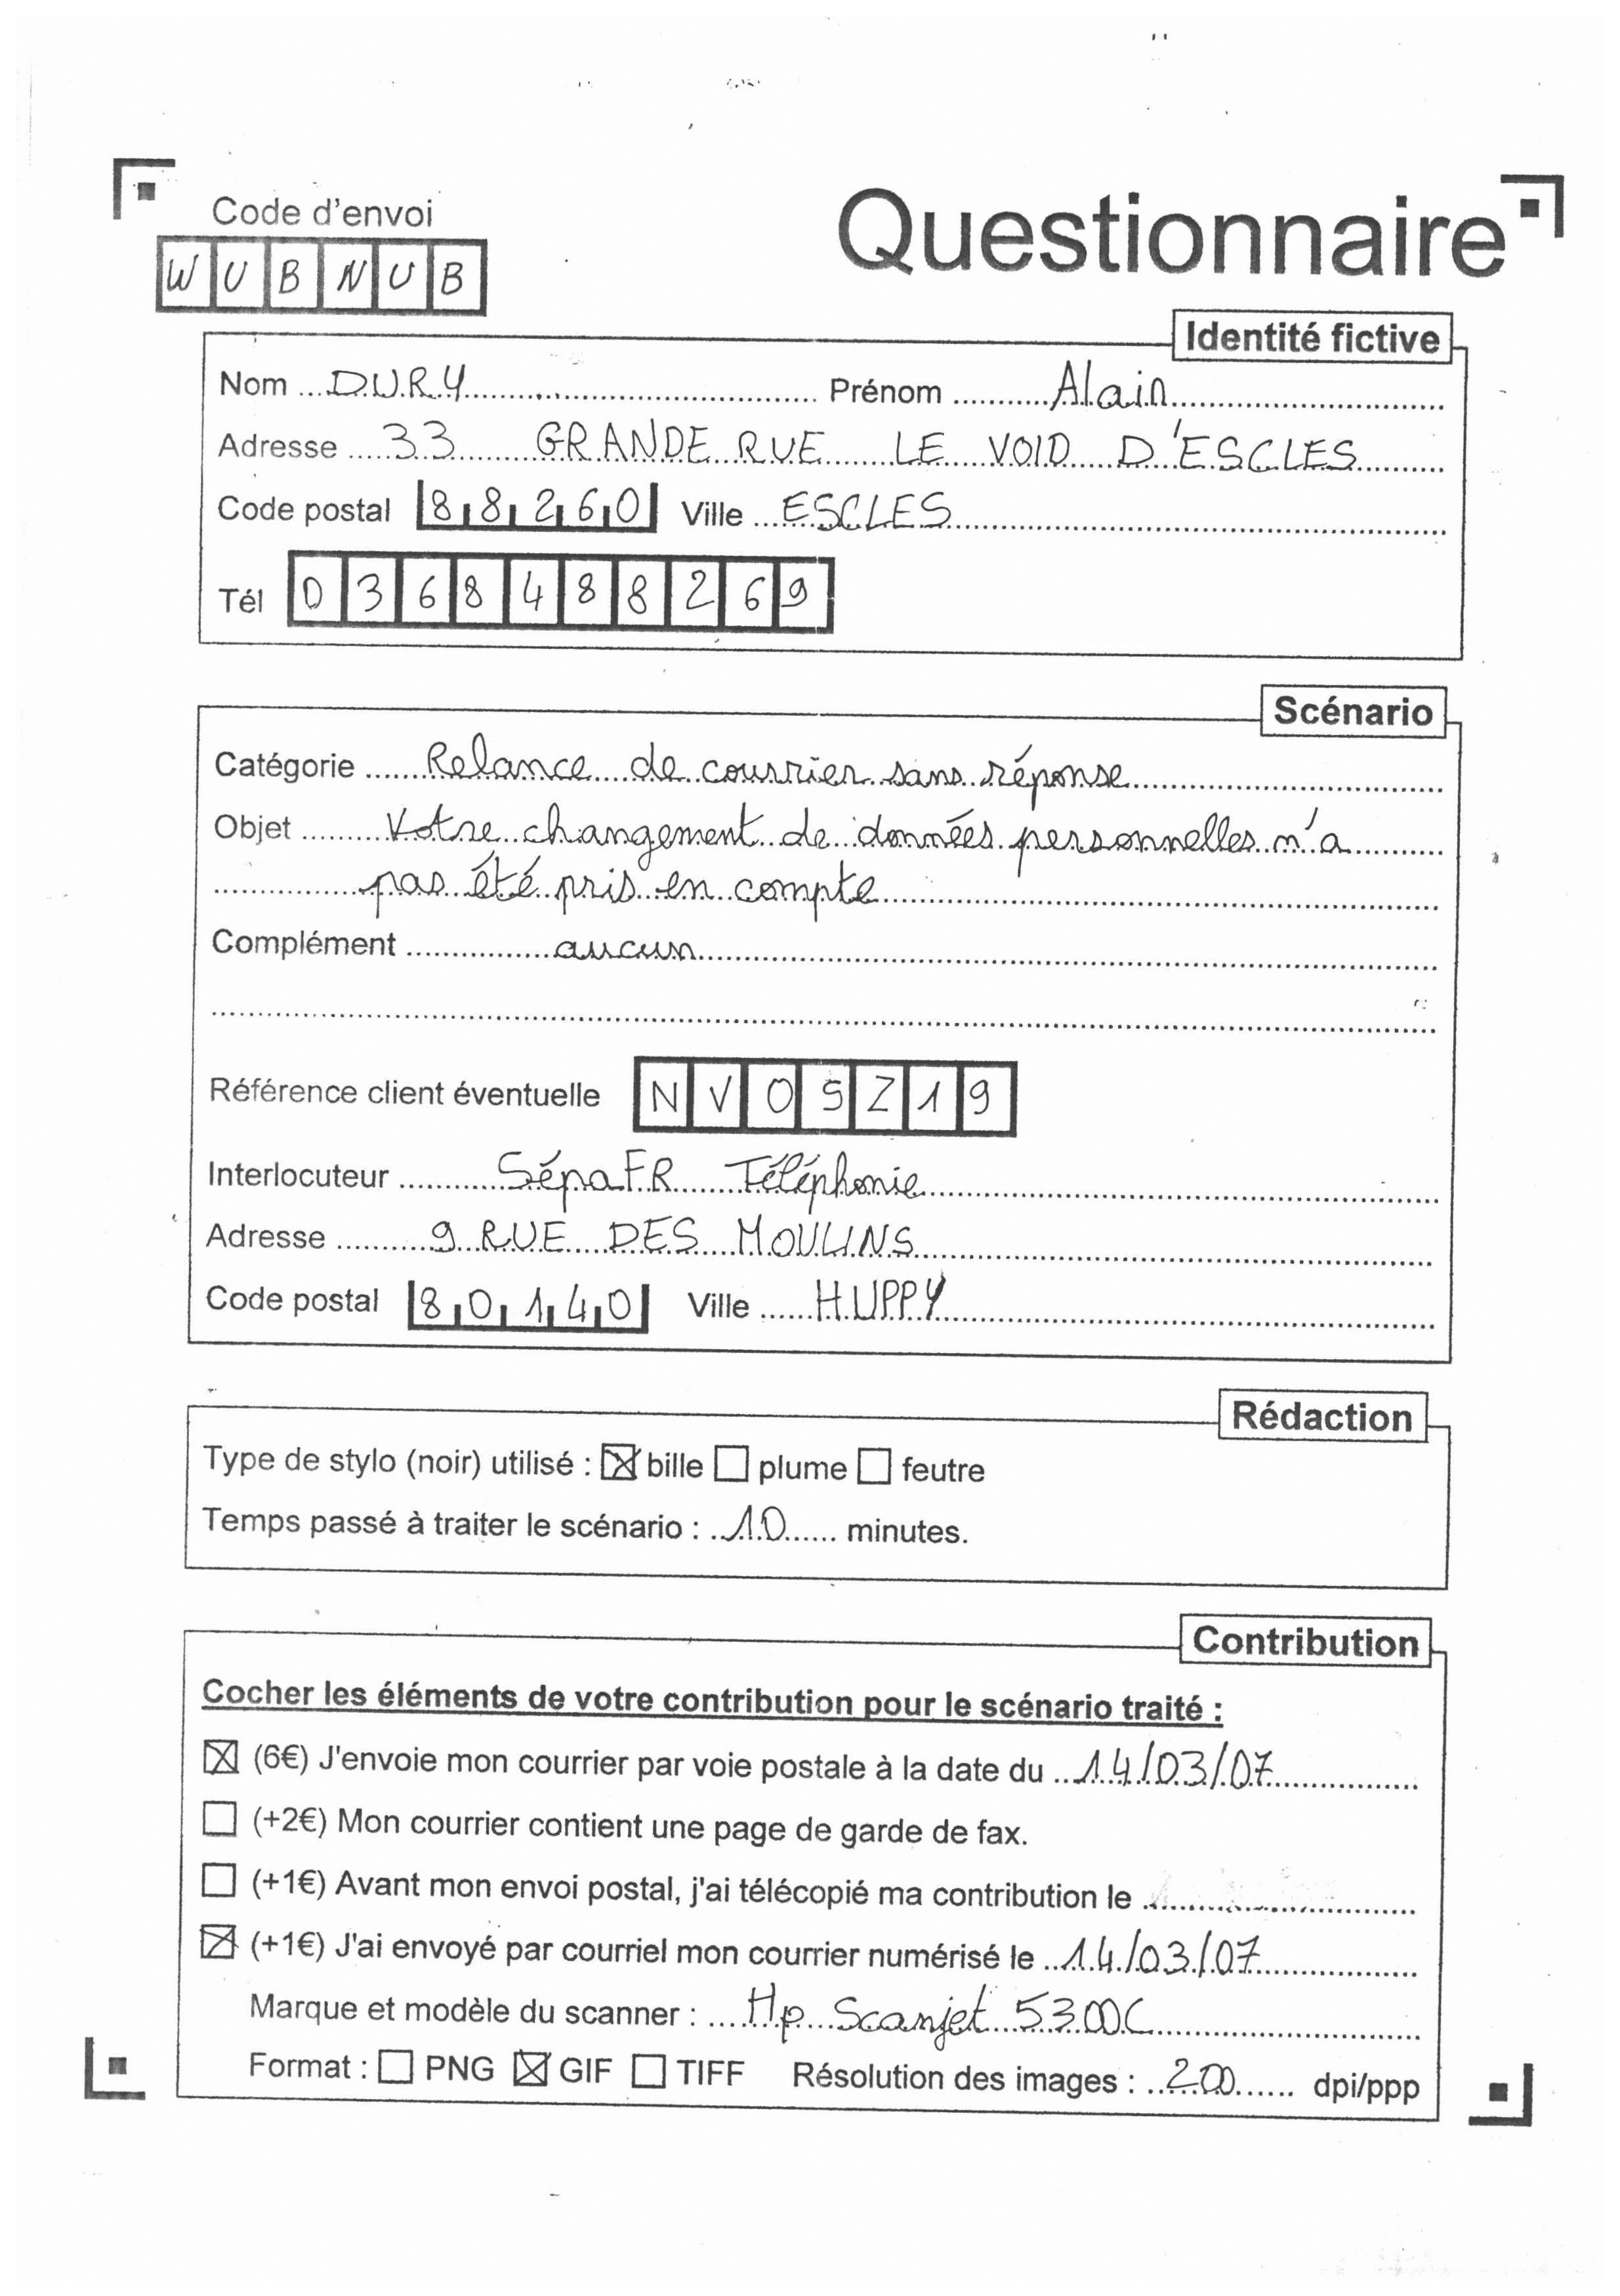 Code d'envoi
WUBNUB
Questionnaire
Identité fictive
Nom DURY Prénom Alain
Adresse 33 GRANDE RUE LE VOID D'ESCLES
Code postal 88260 Ville ESCLES
Tél 0368488269
Scénario
Catégorie Relance de courrier sans réponse
Objet Votre changement de données personnelles n'a
pas été pris en compte
Complément aucun
Référence client éventuelle NVOSZ19
Interlocuteur SépaFR Téléphonie
Adresse 9 RUE DES MOULINS
Code postal 80140 Ville HUPPY
Rédaction
Type de stylo (noir) utilisé : ☒ bille ☐ plume ☐ feutre
Temps passé à traiter le scénario : 10 minutes.
Contribution
Cocher les éléments de votre contribution pour le scénario traité :
☒ (6€) J'envoie mon courrier par voie postale à la date du 14/03/07
☐ (+2€) Mon courrier contient une page de garde de fax.
☐ (+1€) Avant mon envoi postal, j'ai télécopié ma contribution le
☒ (+1€) J'ai envoyé par courriel mon courrier numérisé le 14/03/07
Marque et modèle du scanner : Hp Scanjet 5300C
Format : ☐ PNG ☒ GIF ☐ TIFF Résolution des images : 200 dpi/ppp